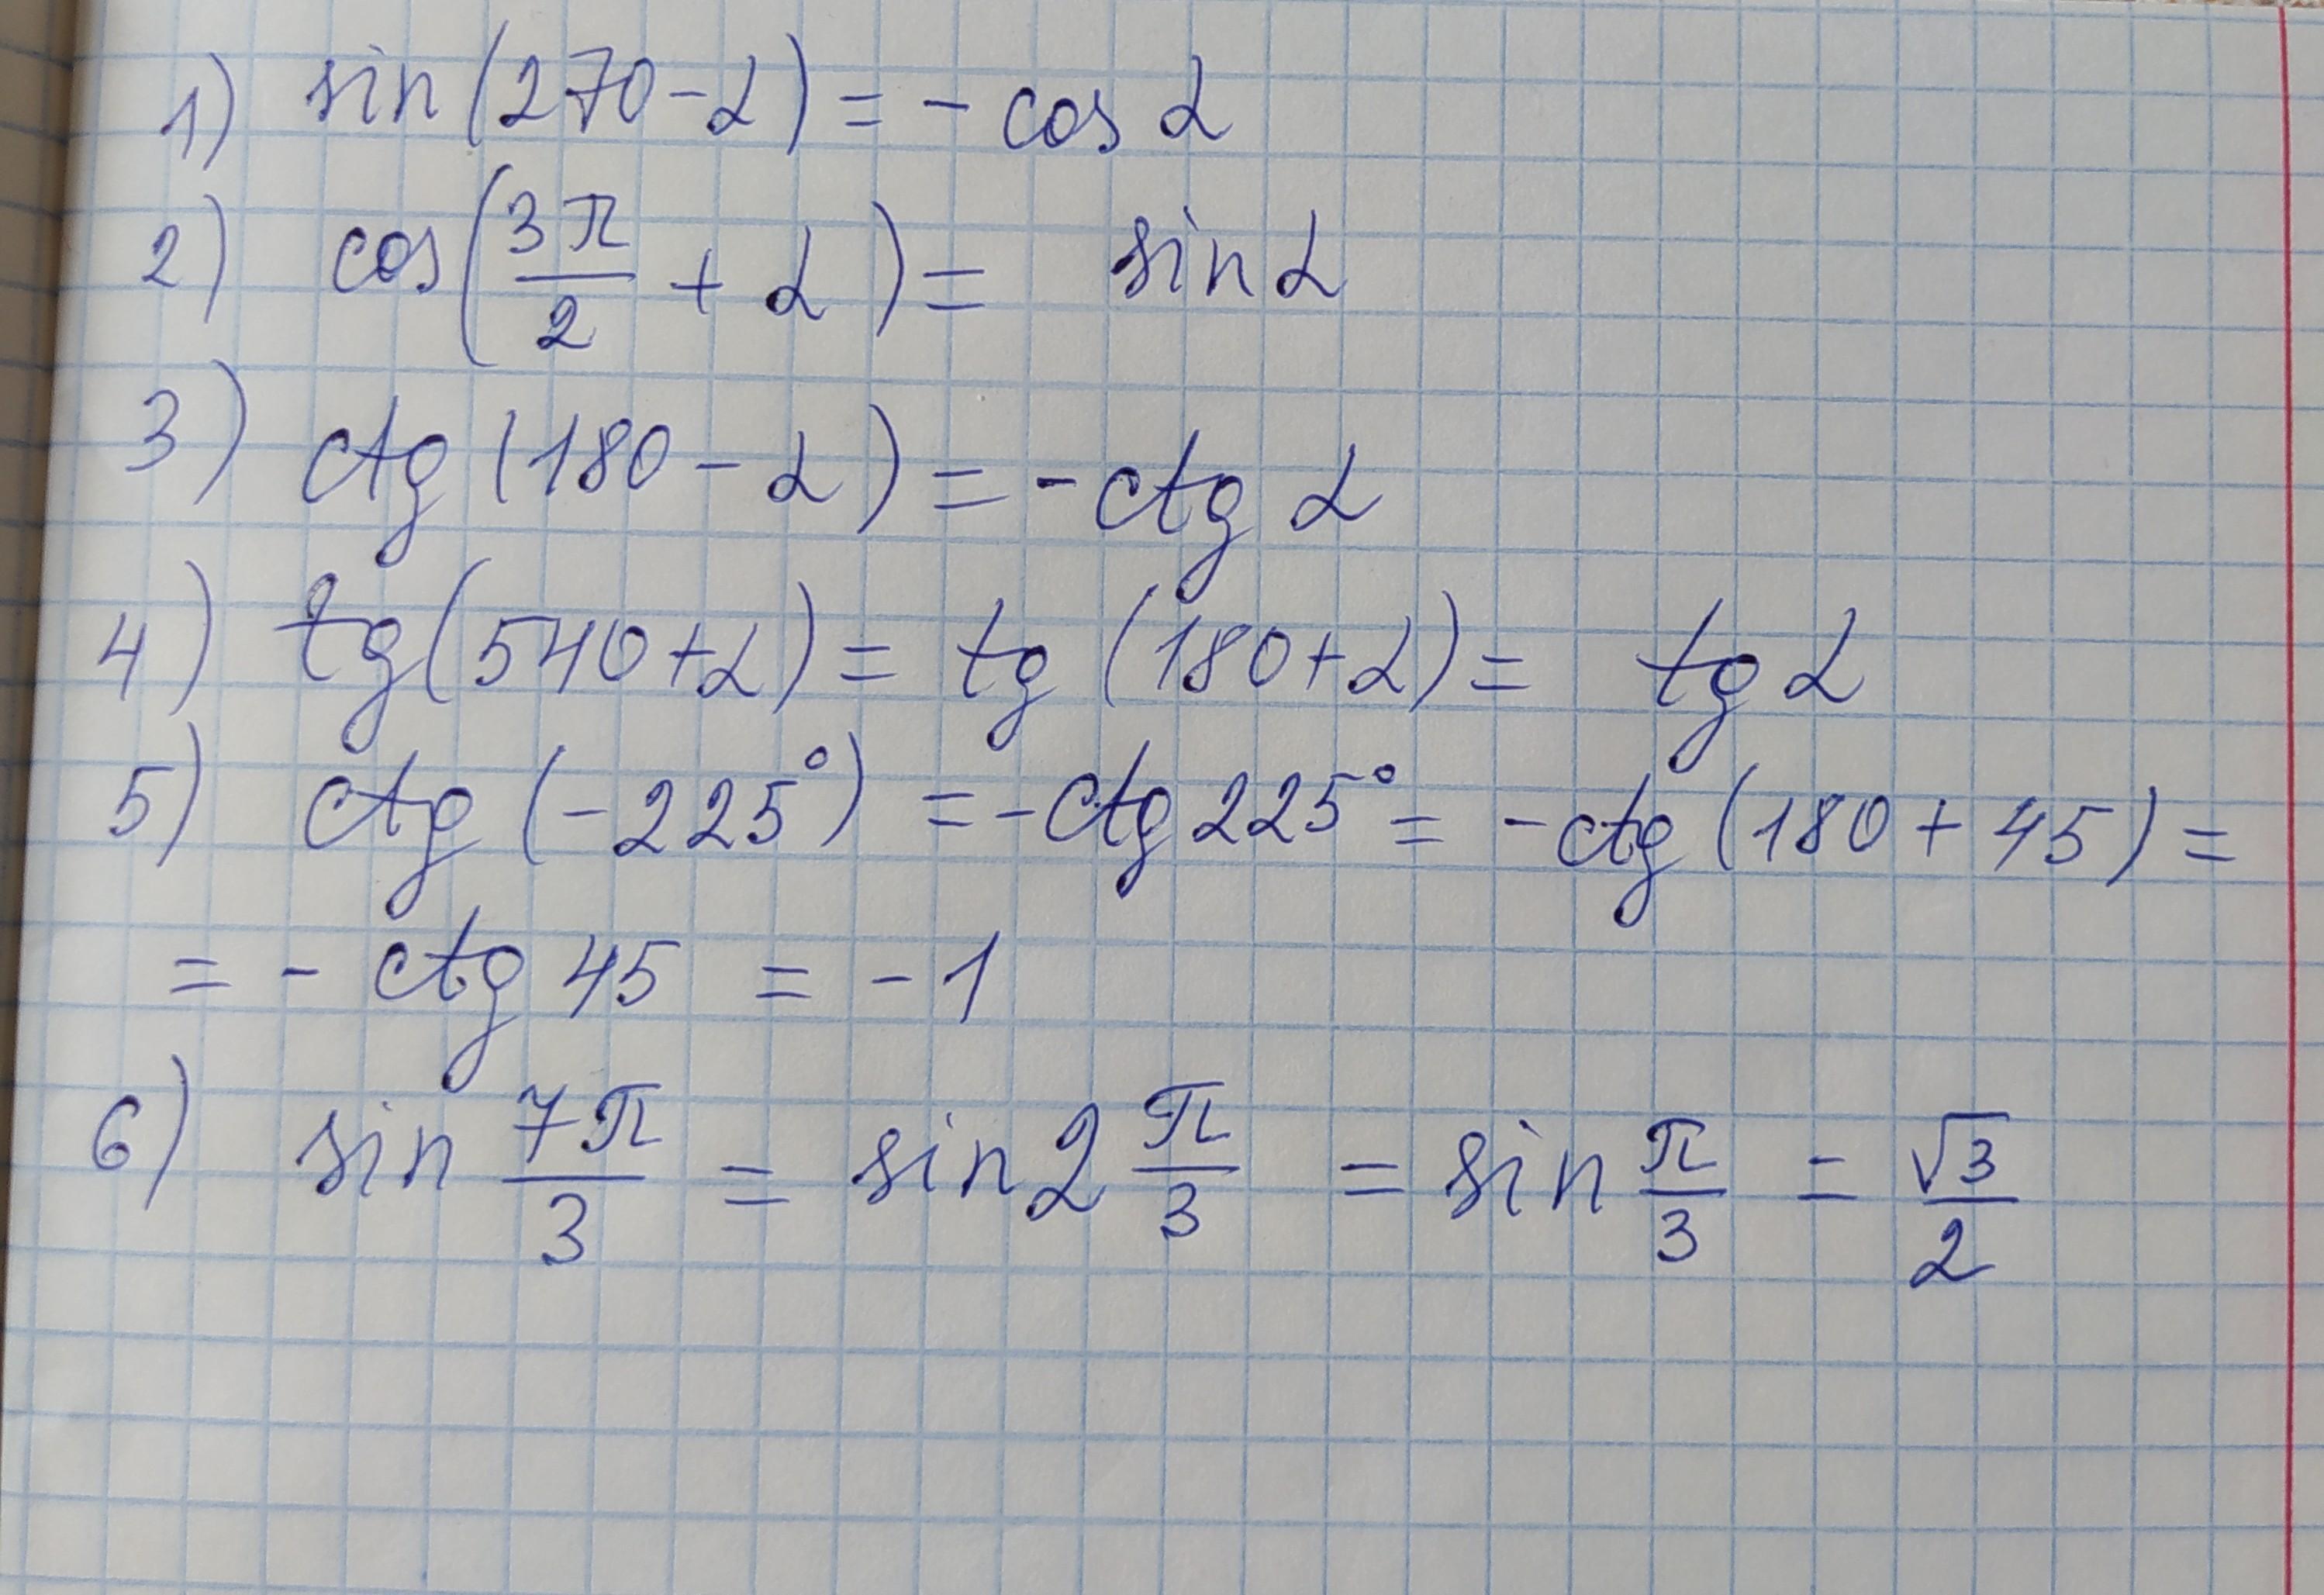 1) sin(270-α) = - cos α
2) cos(3π/2 + α) = sin α
3) ctg (180 - α) = -ctg α
4) tg(540+α) = tg (180+α) = tg α
5) ctg (-225°) = -ctg 225° = -ctg (180 + 45) =
= - ctg 45 = -1
6) sin 7π/3 = sin 2 π/3 = sin π/3 = √3/2